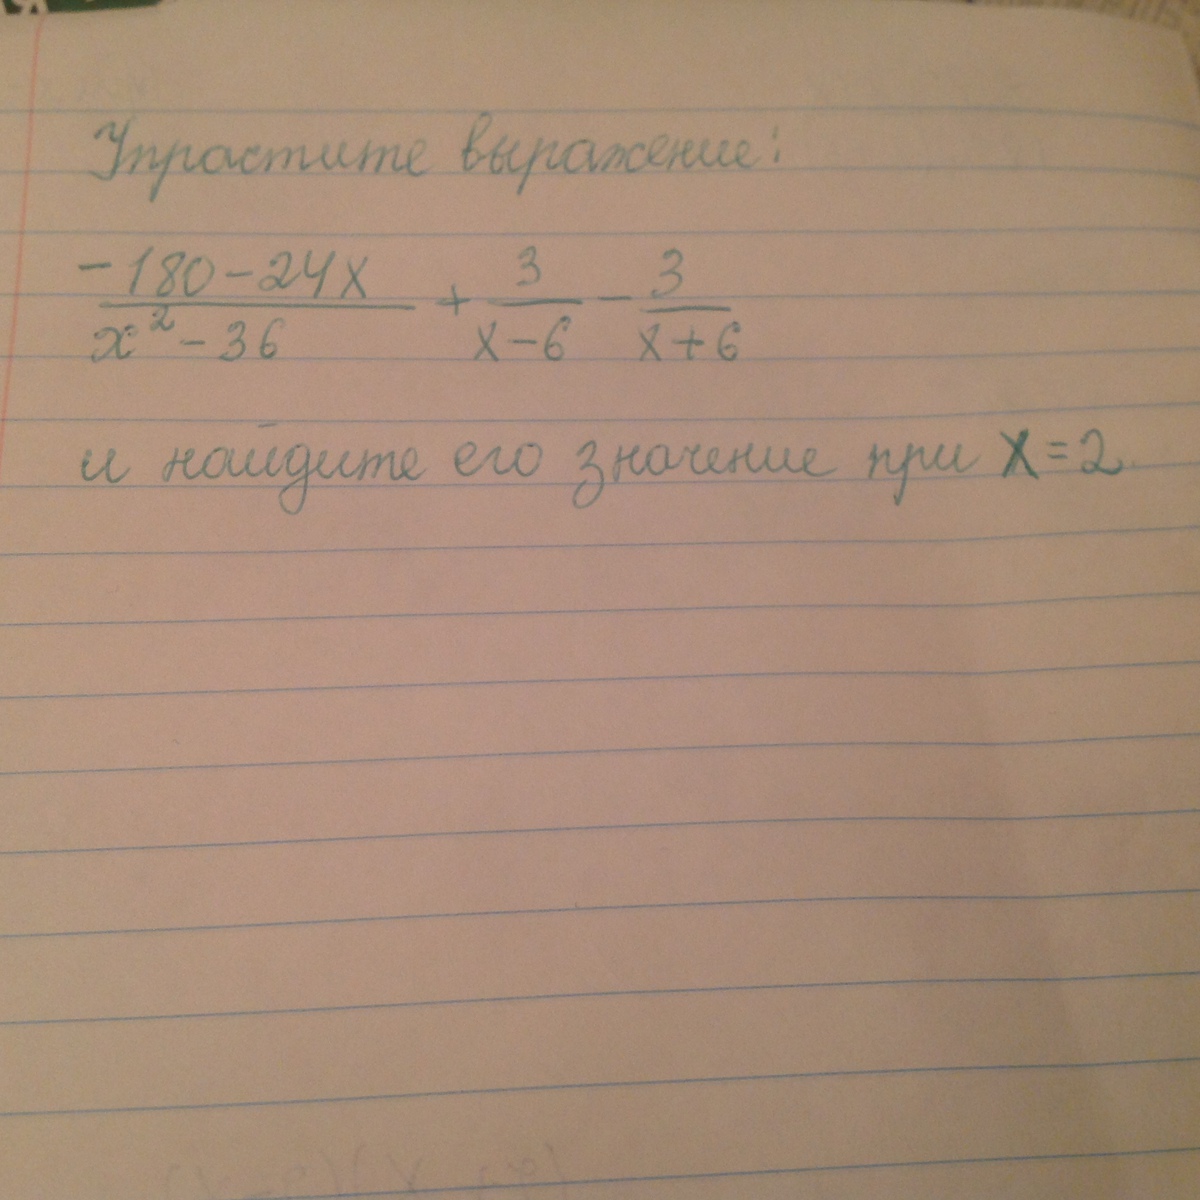 Упростите выражение:
-180-24x/x²-36 + 3/x-6 - 3/x+6
и найдите его значение при x=2